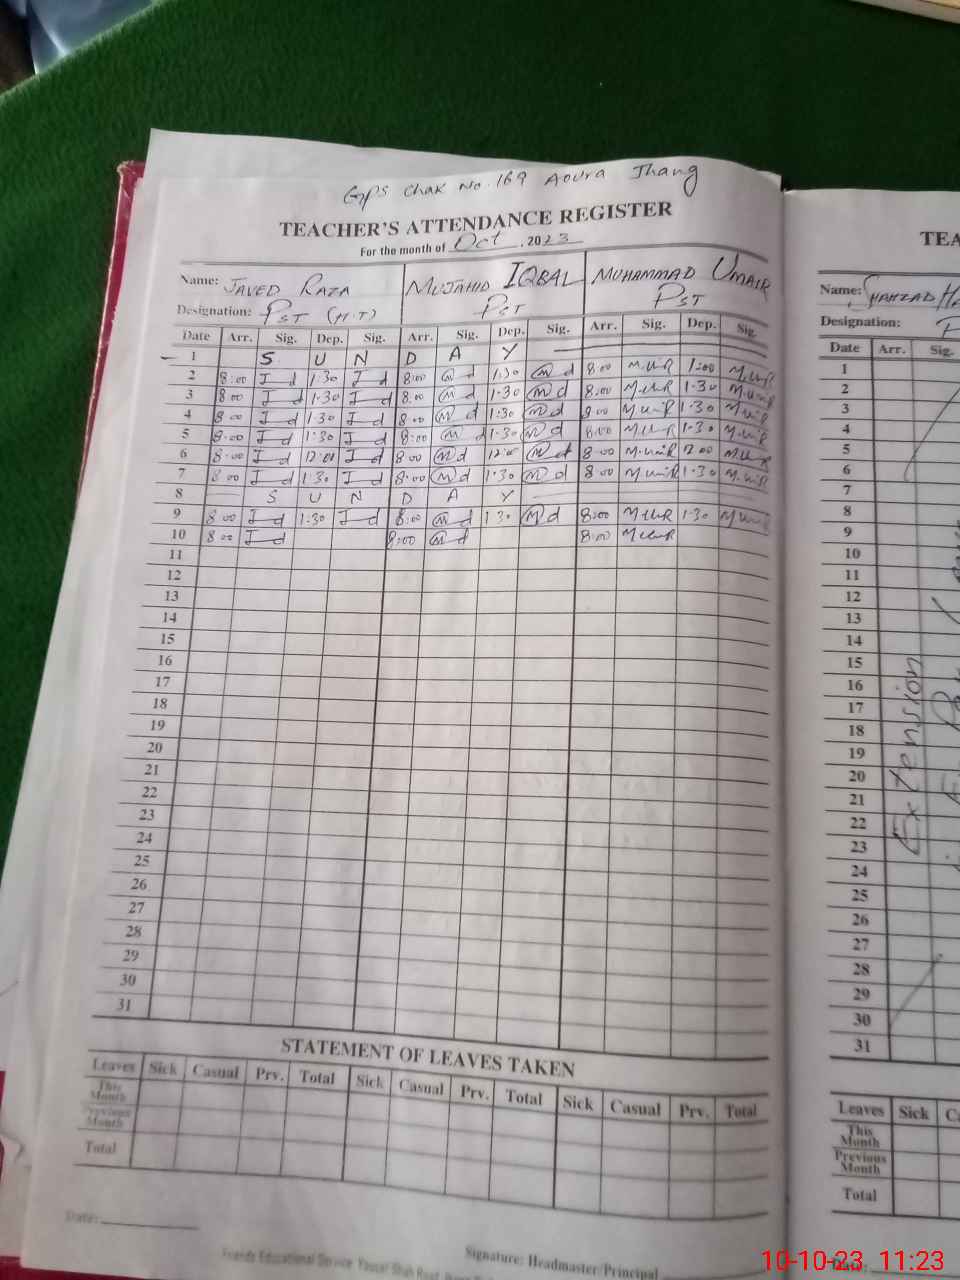 GPS Chak No. 169 Adura Jhang
TEACHER'S ATTENDANCE REGISTER
For the month of Oct, 2023
Name: JAVED RAZA MUJAHID IQBAL MUHAMMAD UMAIR
Designation: PST (H.T) PST PST
Date Arr. Sig. Dep. Sig. Arr. Sig. Dep. Sig. Arr. Sig. Dep. Sig.
1 S U N D A Y
2 8:00 1:30 8:00 1:30 8:00 1:00
3 8:00 1:30 8:00 1:30 8:00 1:30
4 8:00 1:30 8:00 1:30 8:00 1:30
5 8:00 1:30 8:00 1:30 8:00 1:30
6 8:00 12:00 8:00 12:00 8:00 12:00
7 8:00 1:30 8:00 1:30 8:00 1:30
8 S U N D A Y
9 8:00 1:30 8:00 1:30 8:00 1:30
10 8:00 8:00 8:00
11
12
13
14
15
16
17
18
19
20
21
22
23
24
25
26
27
28
29
30
31
STATEMENT OF LEAVES TAKEN
Leaves Sick Casual Prv. Total Sick Casual Prv. Total Sick Casual Prv. Total
This Month
Previous Month
Total
Date:
Signature: Headmaster/Principal
TEA
Name: SHAHZAD
Designation:
Date Arr. Sig.
1
2
3
4
5
6
7
8
9
10
11
12
13
14
15
16
17
18
19
20
21
22
23
24
25
26
27
28
29
30
31
Extension
Leaves Sick
This Month
Previous Month
Total
Date:
10-10-23 11:23